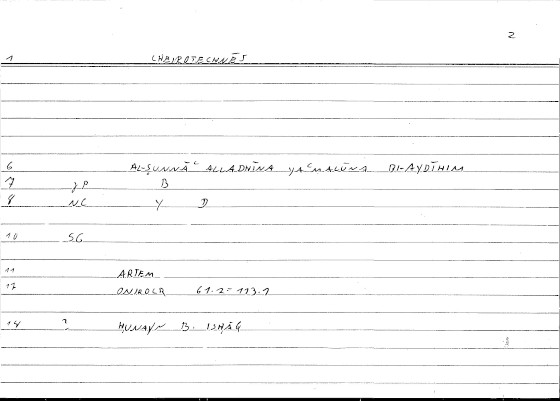 2
1 CHEIROTECHNĒS
6 AL-ṢUNNĀʿ ALLADHĪNA YAʿMALŪNA BI-AYDĪHIM
7 JP B
8 NC Y D
10 SG
11 ARTEM
17 ONIROCR 61.2 = 113.1
18 ? ḤUNAYN B. ISḤĀQ